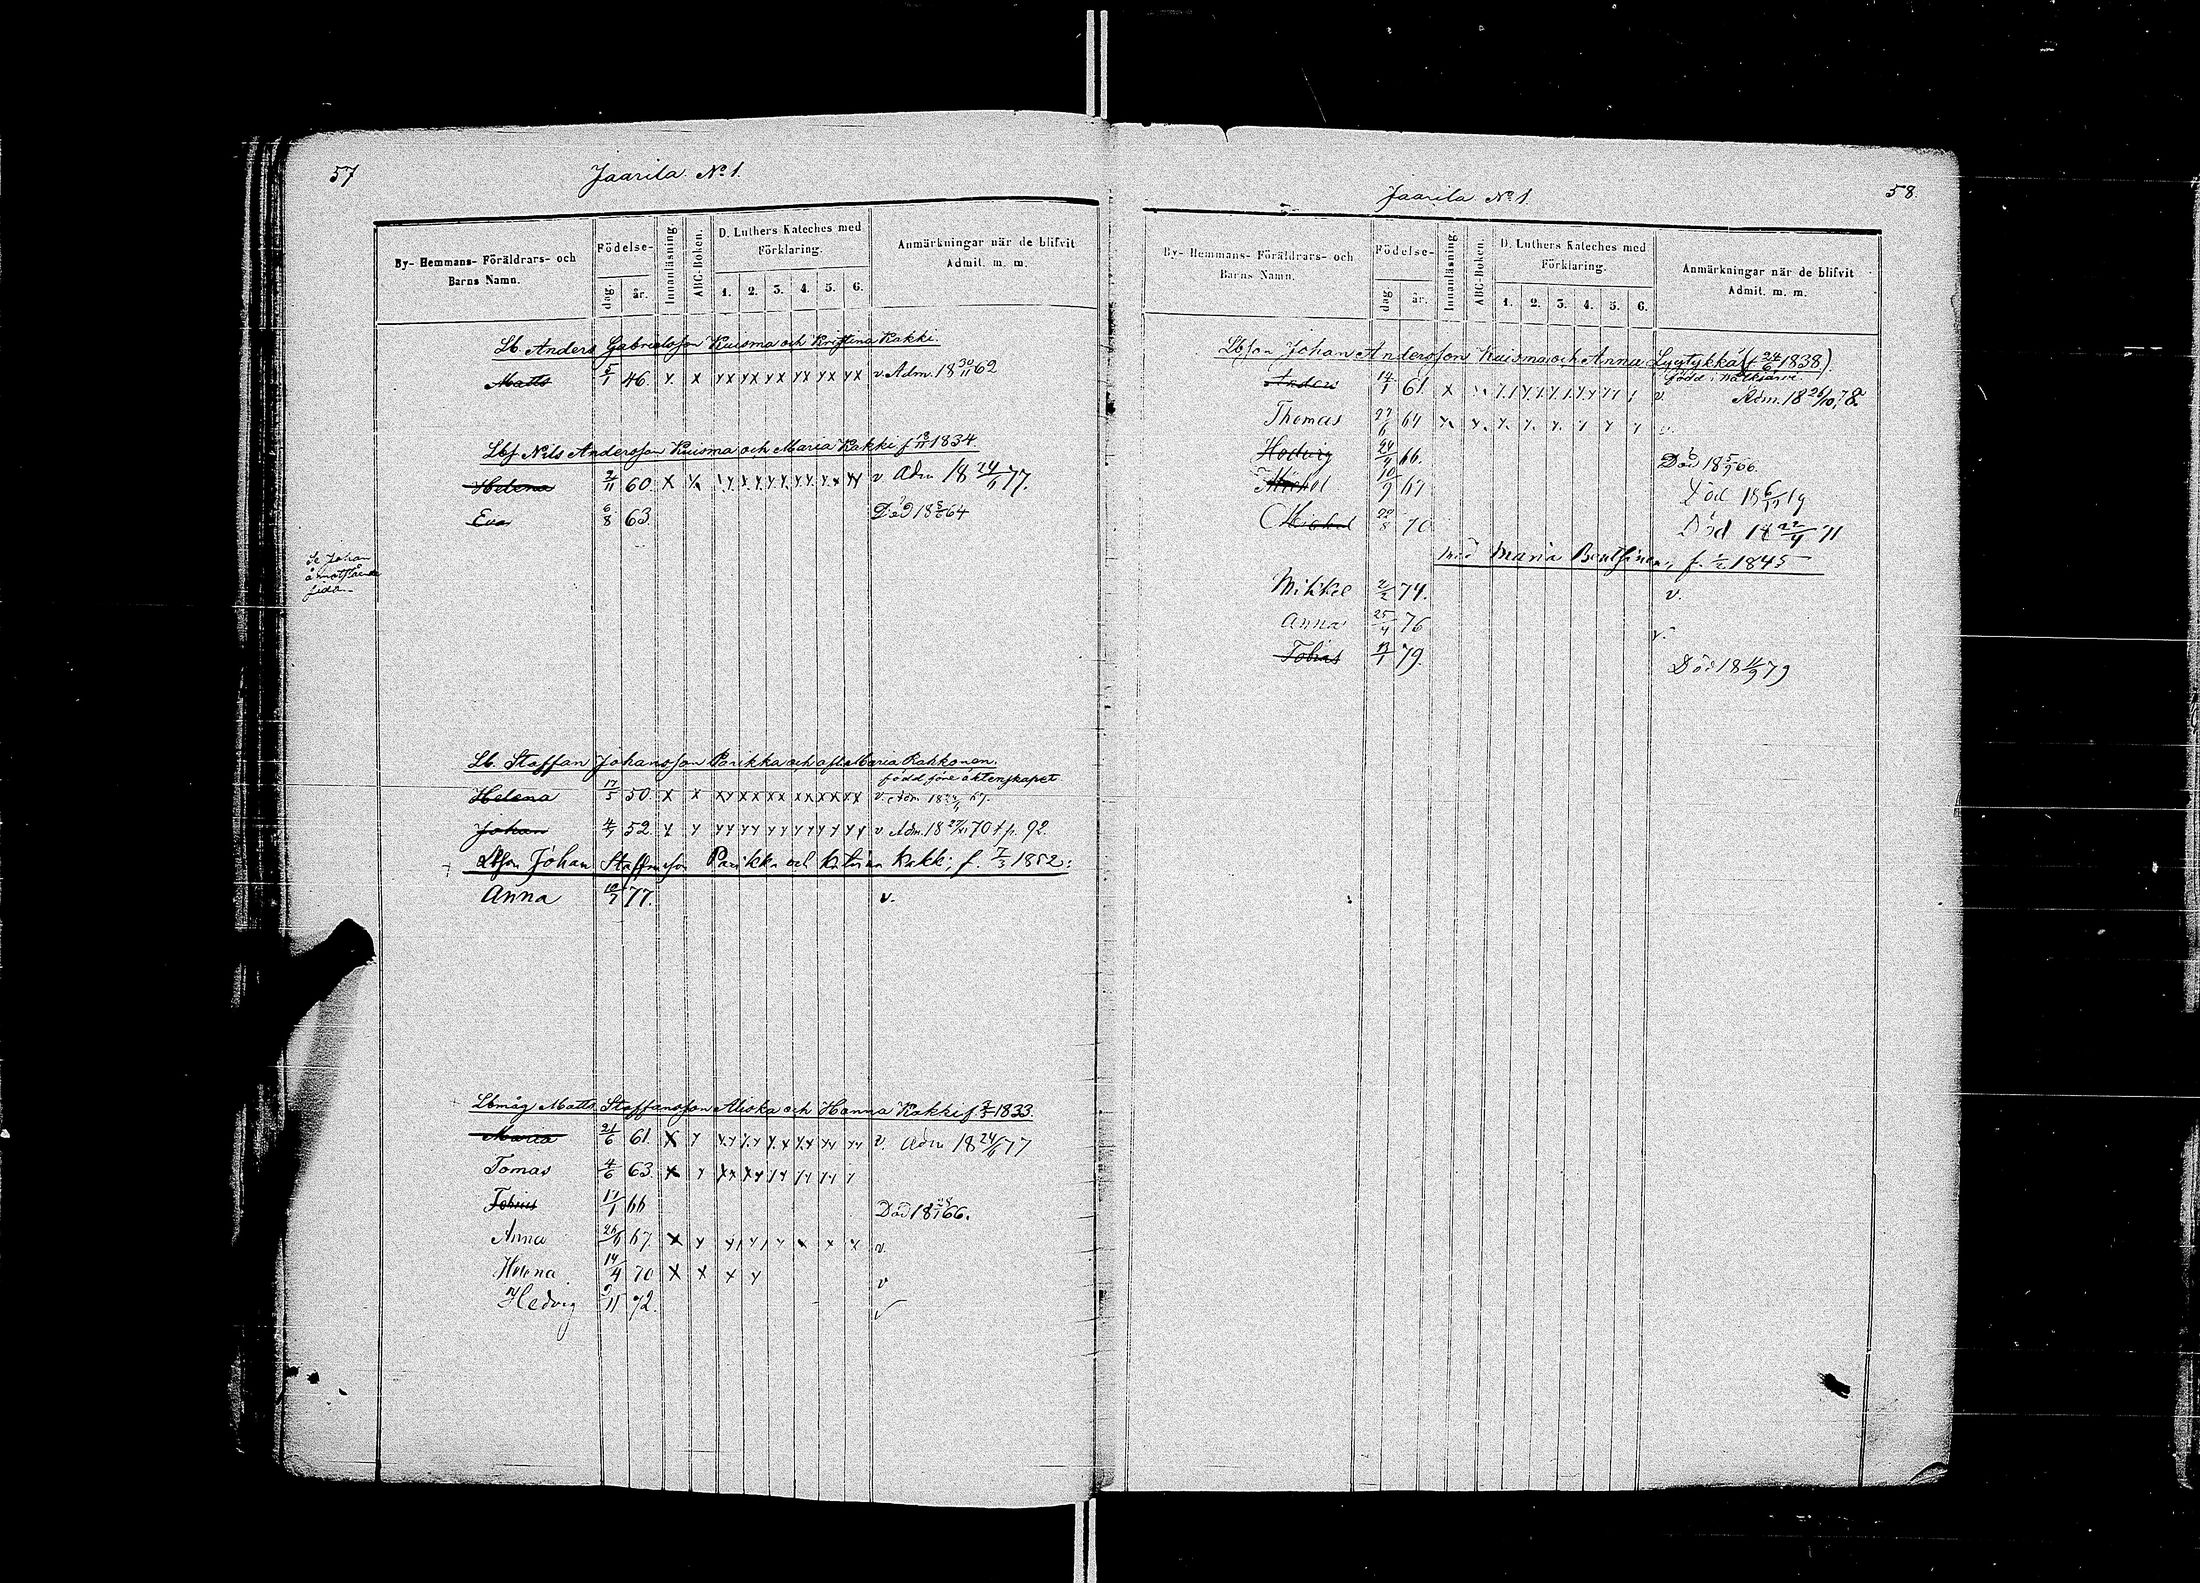 57
Jaarila No 1.
By- Hemmans- Föräldrars- och Barns Namn.
Födelse-
dag.
år.
Innanläsning.
ABC-Boken.
D. Luthers Kateches med Förklaring.
1. 2. 3. 4. 5. 6.
Anmärkningar när de blifvit Admit. m. m.
Lb. Anders Gabrielsson Kuisma och Kristina Kakki.
Matts 5/1 46. x x xx xx xx xx xx xx v Adm. 18 30/11 62
Lbs Nils Andersson Kuisma och Maria Kakki f 1834.
Helena 2/11 60. v Adm 18 24/6 77.
Eva 6/8 63. Död 18 64
Se Johan
å motstående
sida.
Lb. Staffan Johansson Parikka och Maria Kakkonen.
född före äktenskapet
Helena 17/5 50. x x xx xx xx xx xx xx v. Adm. 18 67.
Johan 4/7 52. v Adm. 18 70 p. 92.
Lbson Johan Staffansson Parikka och Kakki, f. 7/3 1852:
Anna 77. v.
Lbmåg Matts Staffansson Aliska och Hanna Kakki f. 1833.
Maria 21/6 61. v. Adm 18 24/6 77
Tomas 4/6 63.
Tobias 17/1 66 Död 18 66.
Anna 67. v.
Helena 14/4 70 x x x x v
Hedvig 9/11 72. v
58.
Jaarila No 1.
By- Hemmans- Föräldrars- och Barns Namn.
Födelse-
dag
år.
Innanläsning.
ABC-Boken.
D. Luthers Kateches med Förklaring.
1. 2. 3. 4. 5. 6.
Anmärkningar när de blifvit Admit. m. m.
Lbson Johan Andersson Kuisma och Anna Lyytykkä (f 24/6 1838)
född i
Anders 14/1 61. v. Adm. 18 26/10 78.
Thomas 27/6 64 v.
Hedvig 24/4 66. Död 18 5/9 66.
Michel 10/9 67 Död 18 6/12 19
Michel 22/8 70 Död 18 22/4 71
med Maria f. 1/2 1845
Mikkel 2/2 74. v.
Anna 25/4 76 v.
Tobias 13/1 79. Död 18 11/9 79